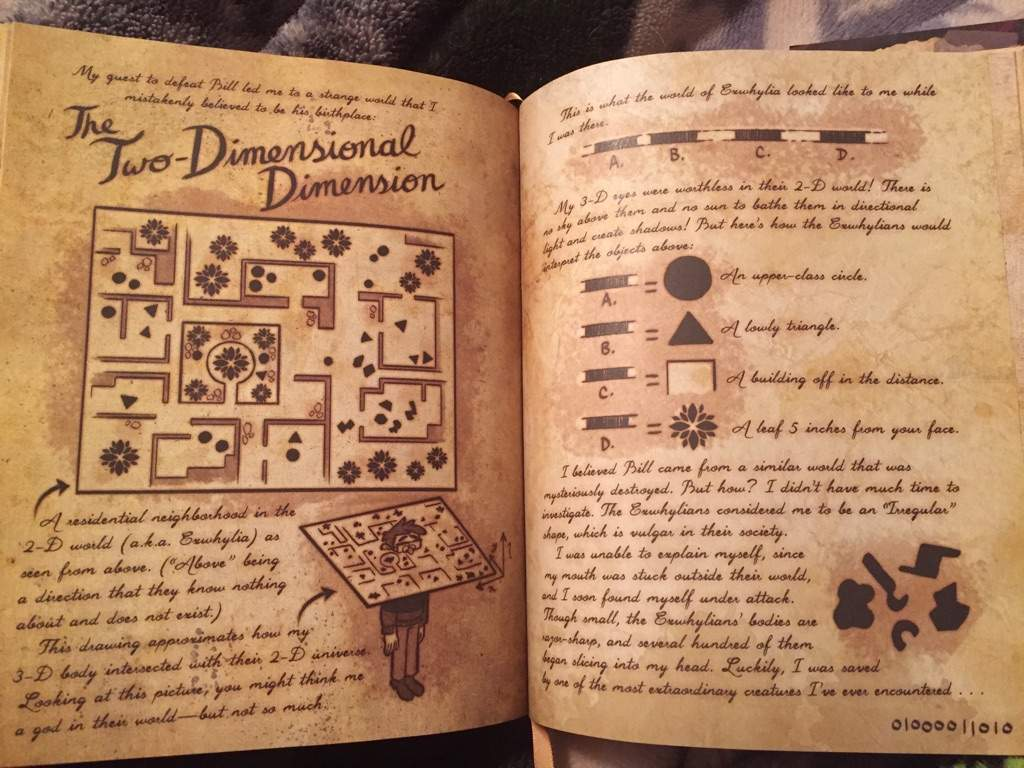 My quest to defeat Bill led me to a strange world that I
mistakenly believed to be his birthplace:
The
Two-Dimensional
Dimension
A residential neighborhood in the
2-D world (a.k.a. Exwhylia) as
seen from above. ("Above" being
a direction that they know nothing
about and does not exist.)
This drawing approximates how my
3-D body intersected with their 2-D universe.
Looking at this picture, you might think me
a god in their world—but not so much.
This is what the world of Exwhylia looked like to me while
I was there.
A. B. C. D.
My 3-D eyes were worthless in their 2-D world! There is
no sky above them and no sun to bathe them in directional
light and create shadows! But here's how the Exwhylians would
interpret the objects above:
A. = An upper-class circle.
B. = A lowly triangle.
C. = A building off in the distance.
D. = A leaf 5 inches from your face.
I believed Bill came from a similar world that was
mysteriously destroyed. But how? I didn't have much time to
investigate. The Exwhylians considered me to be an "Irregular"
shape, which is vulgar in their society.
I was unable to explain myself, since
my mouth was stuck outside their world,
and I soon found myself under attack.
Though small, the Exwhylians' bodies are
razor-sharp, and several hundred of them
began slicing into my head. Luckily, I was saved
by one of the most extraordinary creatures I've ever encountered . . .